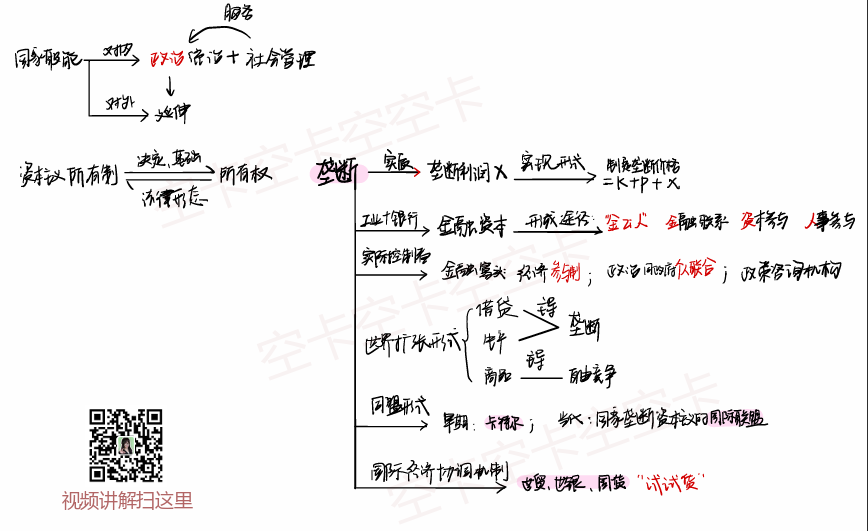 服务
国家职能 对内 政治统治 + 社会管理
对外 延伸
资本主义所有制 决定、基础 所有权
法律形态
垄断 实质 垄断利润X 实现形式 制定垄断价格
=K+P+X
工业+银行 金融资本 形成途径: “金三人” 金融联系 资本参与 人事参与
实际控制者 金融寡头: 经济参与制; 政治同政府个人联合; 政策咨询机构
世界扩张形式
借贷 主导 垄断
生产
商品 主导 自由竞争
同盟形式 早期: 卡特尔; 当代: 国家垄断资本主义的国际联盟
国际经济协调机制 世贸、世银、国货 “试试货”
视频讲解扫这里
空卡空卡空空卡
空卡空卡空空卡
空卡空卡空空卡